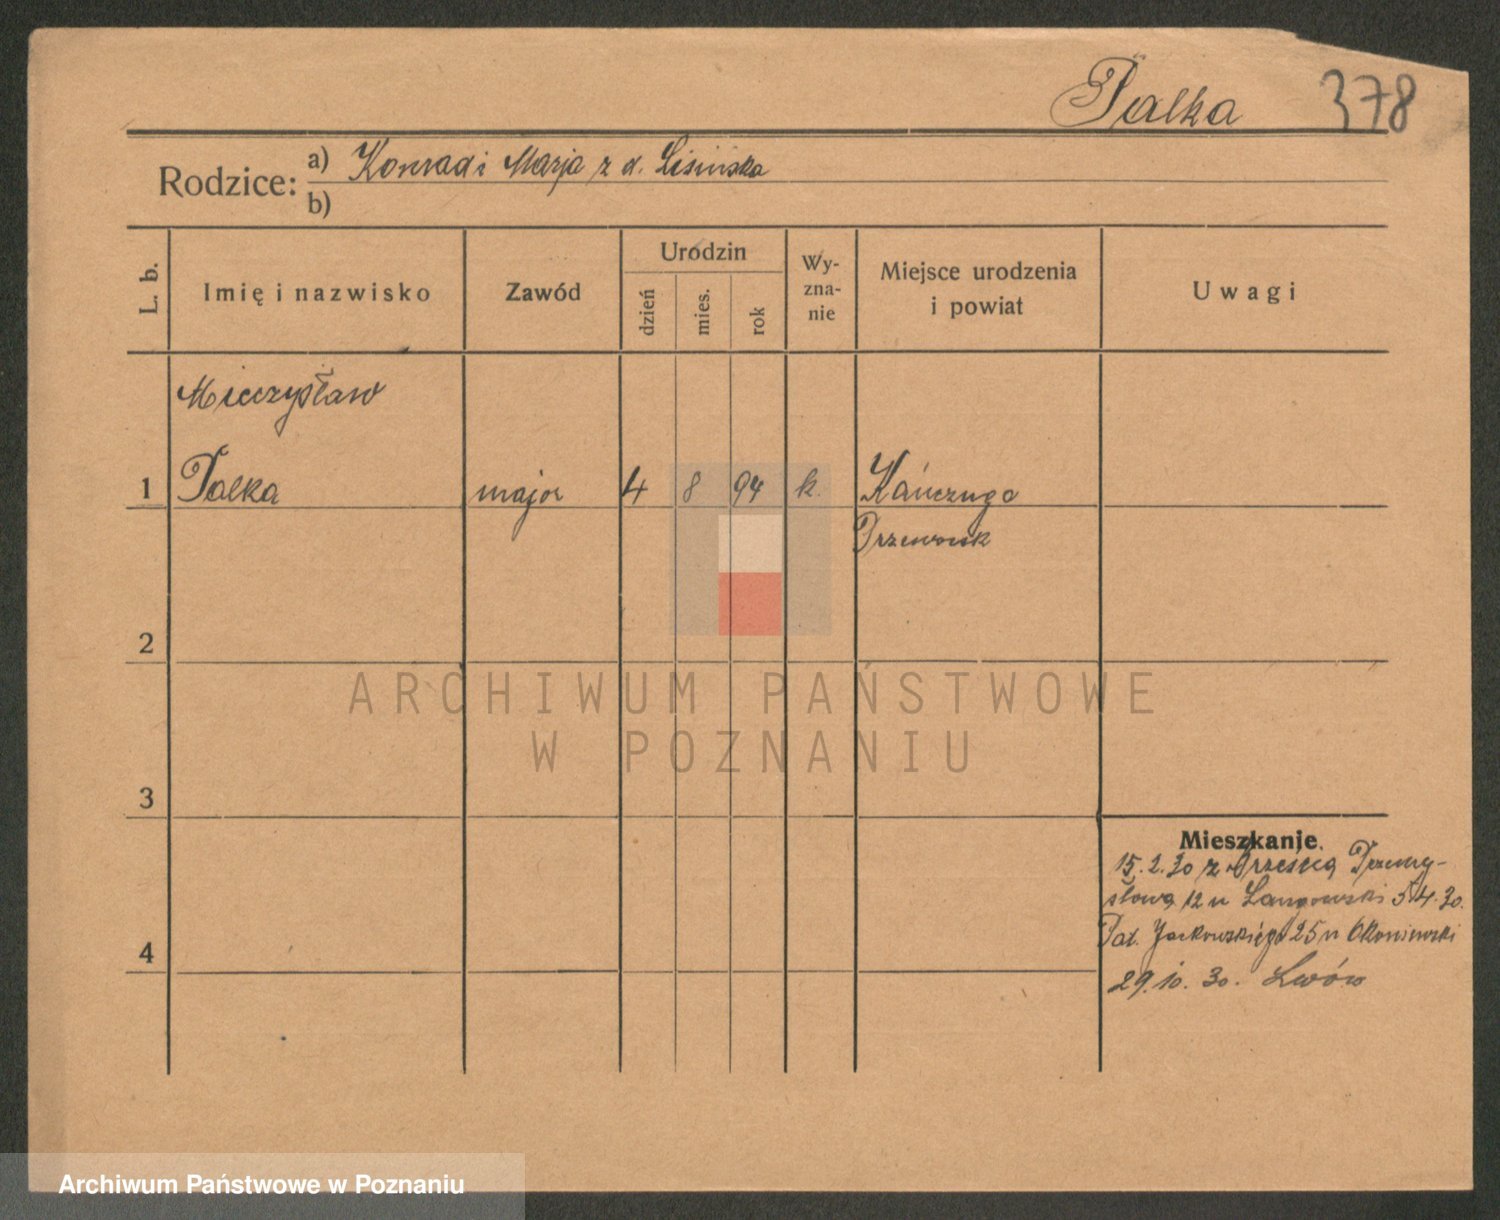 Palka 378
Rodzice: a) Konrad i Marja z d. Lisińska
b)
L. b. Imię i nazwisko Zawód Urodzin dzień mies. rok Wy-zna-nie Miejsce urodzenia i powiat Uwagi
Mieczysław
1 Palka major 4 8 94 k. Kańczuga
Przeworsk
2
ARCHIWUM PAŃSTWOWE
W POZNANIU
3
Mieszkanie
15.2.30 z Września Przemy-
słowa 12 u Langowski 5.4.30.
4 Pat. Jackowskiego 25 u Okoniewski
29.10.30. Lwów
Archiwum Państwowe w Poznaniu